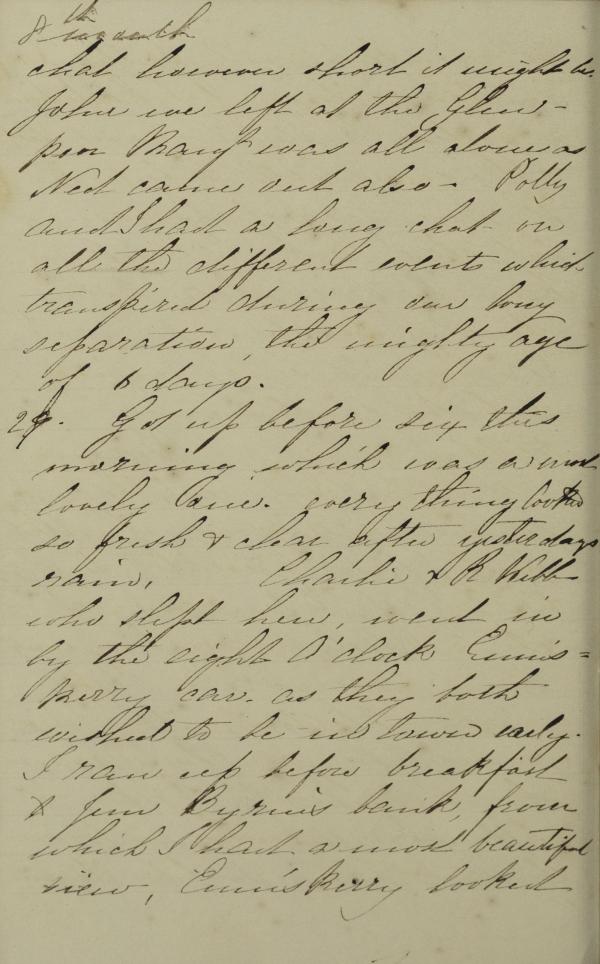 8th month
chat however short it might be.
John we left at the Glen-
pen Mary was all alone as
Ned came out also - Polly
and I had a long chat on
all the different events which
transpired during our long
separation, the mighty age
of 6 days.
29. Got up before six this
morning which was a most
lovely one. every thing looked
so fresh & clear after yesterdays
rain, Charlie & R Webb
who slept here, went in
by the eight O'clock Ennis=
kerry car. as they both
wished to be in town early.
I ran up before breakfast
Byrne's bank, from
which I had a most beautiful
view, Enniskerry looked